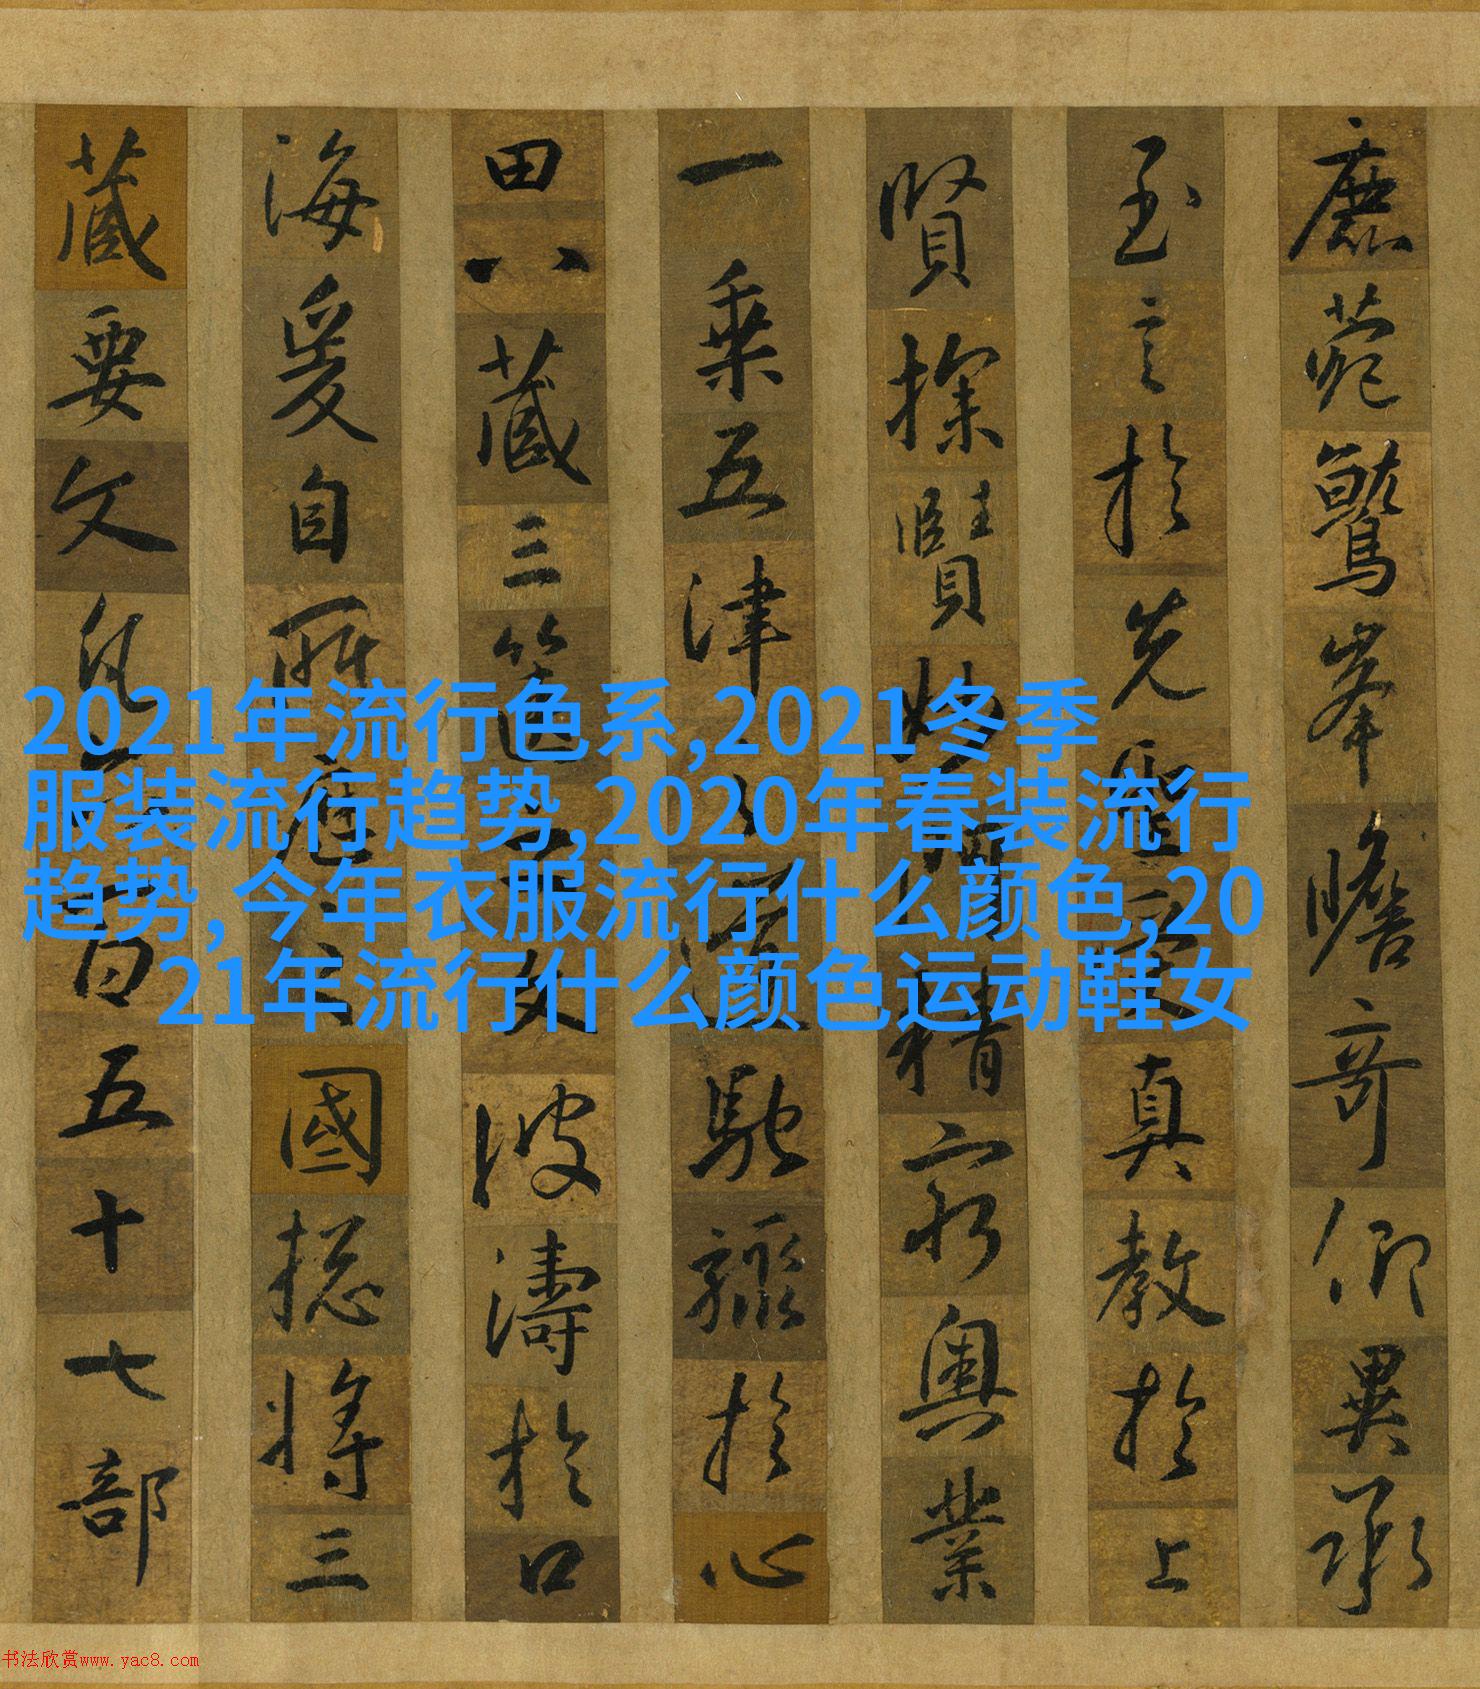 鹿菀鷲峯瞻奇仰異承
至言於先聖受真教於上
賢探賾妙門精窮奧業
一乘五津之道馳驟於心
田八藏三篋之文波濤於口
海爰自所歷之國揔將三
藏要文凡六百五十七部
2021年流行色系,2021冬季
服装流行趋势,2020年春装流行
趋势, 今年衣服流行什么颜色,20
21年流行什么颜色运动鞋女
书法欣赏www.yac8.com